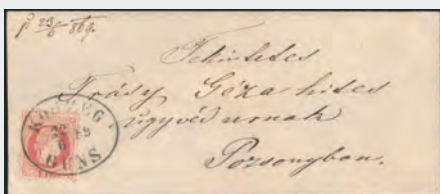 23/6 869.
Tekintetes
Trásy Géza hites
ügyvéd urnak
Pozsonyban.
KŐSZEG
GÜNS